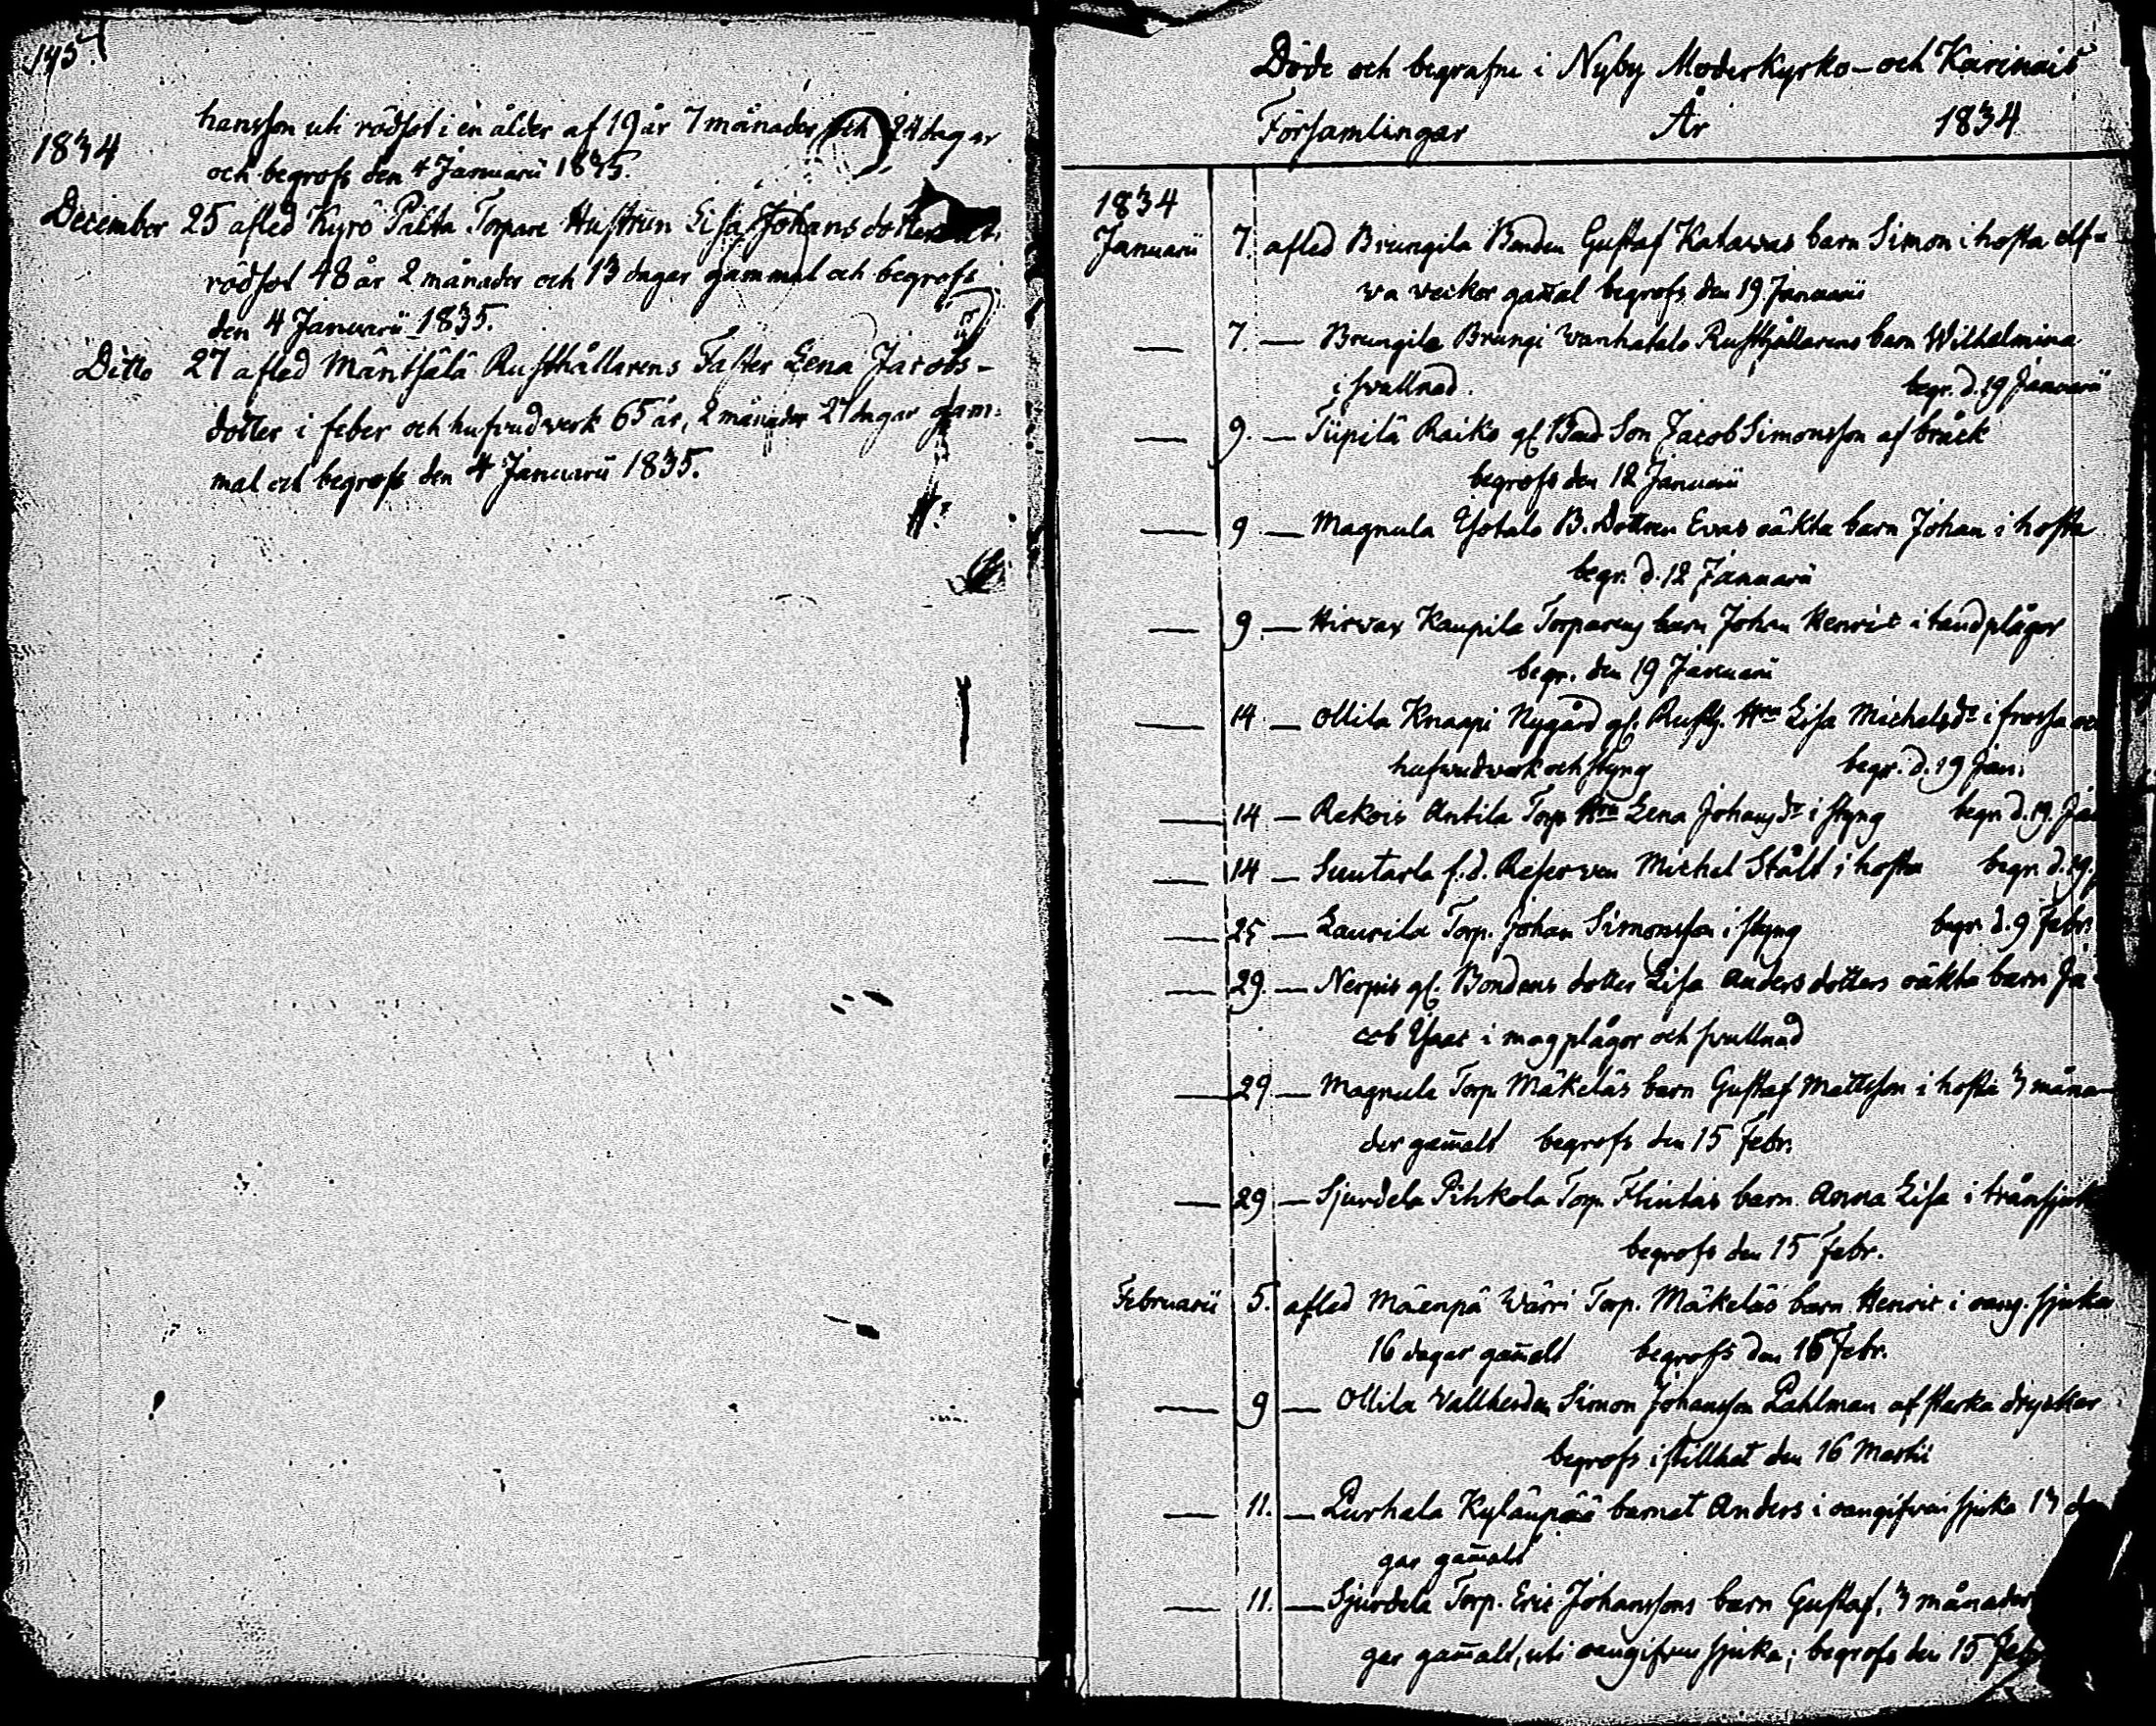 145.
1834
hansson uti rödsot i en ålder af 19 år 7 månader och 24 dagar
och begrofs den 4 Januarii 1835.
December 25 afled Kyrö Pilta Torpare Hustrun Lisa Johans dotter
rödsot 48 år 2 månader och 13 dagar gammal och begrofs
den 4 Januarii 1835.
Ditto 27 afled Mäntsälä Rusthållarens Faster Lena Jacobs-
dotter i feber och hufvudverk 65 år, 2 månader 27 dagar gam-
mal och begrofs den 4 Januarii 1835.
Döde och begrafne i Nyby Moderkyrko- och Karinais
Församlingar År 1834
1834
Januarii 7. afled Brungila Bonden Gustaf Katawas barn Simon i hosta elf-
va veckor gam̅al begrofs den 19 Januarii
— 7. — Brungila Brungi Vanhatalo Rusthållarens barn Wilhelmina
i svullnad. begr. d. 19 Januarii
— 9. — Tiipilä Raiko gl. Bond Son Jacob Simonsson af bråck
begrofs den 12 Januarii
— 9 — Magnula Ysotalo B. Dottren Evas oäkta barn Johan i hosta
begr. d. 12 Januarii
— 9. — Hirvax Kaupila Torparens barn Johan Henric i tandplågor
begr. den 19 Januarii
— 14 — Ollila Knaapi Nygård gl. Rusth. Hru Lisa Michelsdr i frossa
hufvudverk och styng begr. d. 19 Jan.
— 14 — Rekois Antila Torp. Hru Lena Johansdr i styng begr. d. 19. Jan
— 14 — Suutarla f.d. Reserven Michel Stålt i hosta begr. d. 19.
— 25 — Laurila Torp. Johan Simonsson i styng begr. d. 9 Febr.
— 29. — Nerpis gl. Bondens dotter Lisa Anders dotters oäkta barn Ja-
cob Ysaac i magplågor och svullnad
— 29. — Magnula Torp. Mäkeläs barn Gustaf Mattsson i hosta 3 måna-
der gam̅alt begrofs den 15 Febr.
— 29 — Sjurdela Pihkola Torp. Flintas barn Anna Lisa i trånsjuk
begrofs den 15 Febr.
Februarii 5. afled Mäenpä Wärri Torp. Mäkeläs barn Henric i oang. sjuka
16 dagar gam̅alt begrofs den 15 Febr.
— 9 — Ollila Vallherden Simon Johansson Pahlman af starka drycker
begrofs i stillhet den 16 Martii
— 11. — Purhala Kylänpää barnet Anders i oangifven sjuka 13 da
gar gam̅alt
— 11. — Sjurdela Torp. Eric Johanssons barn Gustaf, 3 månader
gar gam̅alt, uti oangifven sjuka; begrofs den 15 Febr